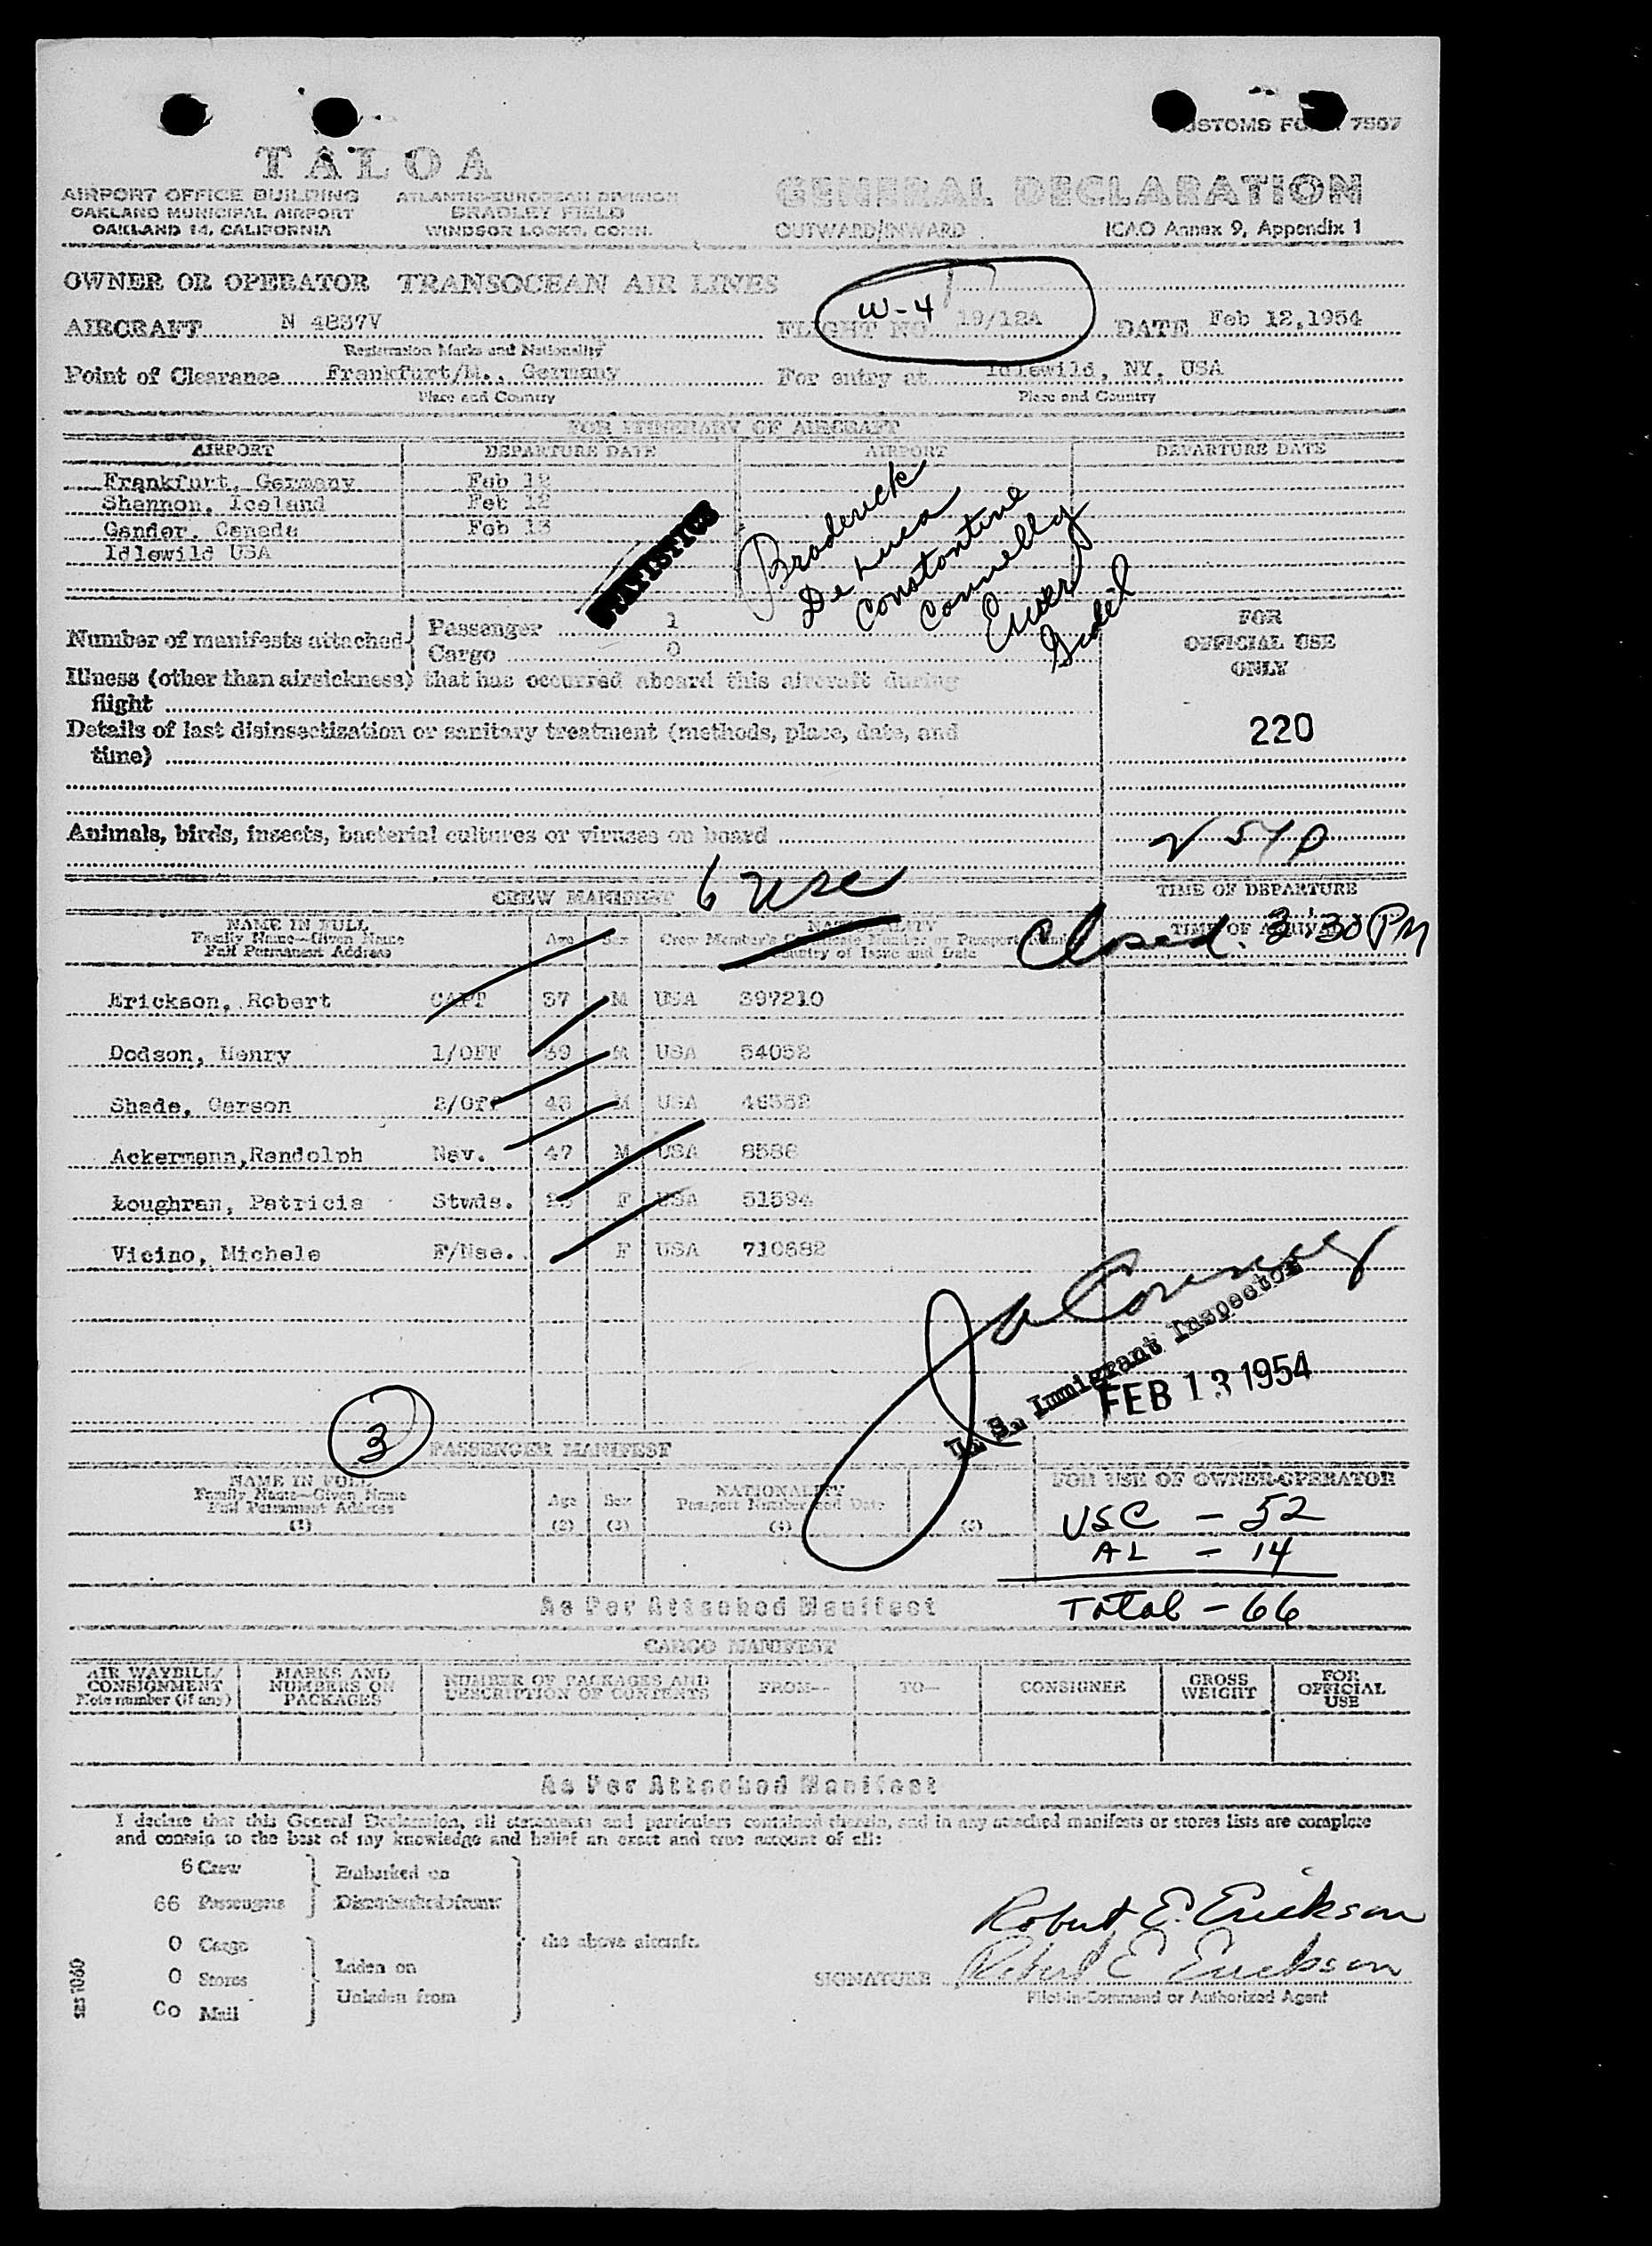 CUSTOMS FORM 7507
TALOA
AIRPORT OFFICE BUILDING
OAKLAND MUNICIPAL AIRPORT
OAKLAND 14, CALIFORNIA
ATLANTIC-EUROPEAN DIVISION
BRADLEY FIELD
WINDSOR LOCKS, CONN.
GENERAL DECLARATION
OUTWARD/INWARD
ICAO Annex 9, Appendix 1
OWNER OR OPERATOR TRANSOCEAN AIR LINES
AIRCRAFT N 4837V FLIGHT NO. 19/12A DATE Feb 12,1954
W-4
Registration Marks and Nationality
Point of Clearance Frankfurt/M., Germany For entry at Idlewild, NY, USA
Place and Country Place and Country
FOR ITINERARY OF AIRCRAFT
AIRPORT DEPARTURE DATE AIRPORT DEPARTURE DATE
Frankfurt, Germany Feb 12
Shannon, Iceland Feb 12
Gander, Canada Feb 13
Idlewild USA
STATISTICS
Broderick
De Luca
Constantine
Connelly
Number of manifests attached Passenger 1
Cargo 0
FOR
OFFICIAL USE
ONLY
Illness (other than airsickness) that has occurred aboard this aircraft during
flight
Details of last disinsectization or sanitary treatment (methods, place, date, and
time)
220
Animals, birds, insects, bacterial cultures or viruses on board
CREW MANIFEST 6 USC
TIME OF DEPARTURE
TIME OF ARRIVAL
Closed 3:30 PM
NAME IN FULL
Family Name—Given Name
Full Permanent Address
Age Sex
NATIONALITY
Crew Member's Certificate Number or Passport Number
Country of Issue and Date
Erickson, Robert CAPT 37 M USA 397210
Dodson, Henry 1/OFF 39 M USA 54052
Shade, Garson 2/Off 43 M USA 46552
Ackermann,Randolph Nav. 47 M USA 8586
Loughran, Patricia Stwds. F USA 51594
Vicino, Michele F/Nse. F USA 710682
U. S. Immigrant Inspector
FEB 13 1954
3
PASSENGER MANIFEST
NAME IN FULL
Family Name—Given Name
Full Permanent Address
(1)
Age
(2)
Sex
(3)
NATIONALITY
Passport Number and Date
(4)
(5)
FOR USE OF OWNER-OPERATOR
USC - 52
AL - 14
Total - 66
As Per Attached Manifest
CARGO MANIFEST
AIR WAYBILL/
CONSIGNMENT
Note number (if any)
MARKS AND
NUMBERS ON
PACKAGES
NUMBER OF PACKAGES AND
DESCRIPTION OF CONTENTS
FROM—
TO—
CONSIGNEE
GROSS
WEIGHT
FOR
OFFICIAL
USE
As Per Attached Manifest
I declare that this General Declaration, all statements and particulars contained therein, and in any attached manifests or stores lists are complete
and contain to the best of my knowledge and belief an exact and true account of all:
6 Crew
66 Passengers
Embarked on
Disembarked from
0 Cargo
0 Stores
Co Mail
Laden on
Unladen from
the above aircraft.
Robert E. Erickson
SIGNATURE Robert E Erickson
Pilot-in-Command or Authorized Agent